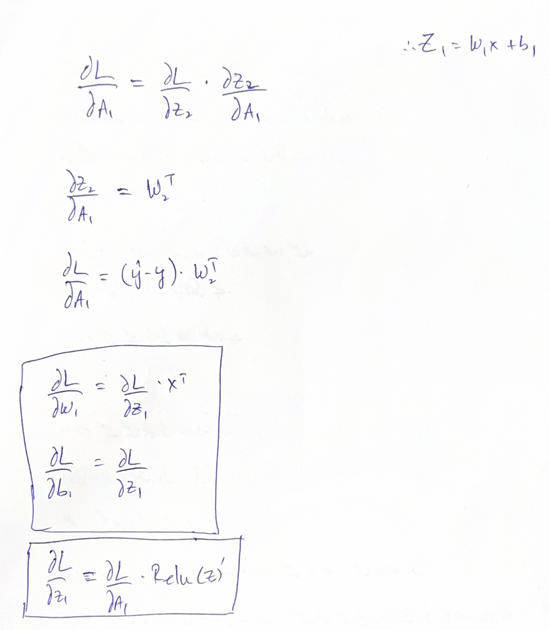 ∴ Z₁ = W₁x + b₁
∂L/∂A₁ = ∂L/∂Z₂ · ∂Z₂/∂A₁
∂Z₂/∂A₁ = W₂ᵀ
∂L/∂A₁ = (ŷ-y) · W₂ᵀ
∂L/∂W₁ = ∂L/∂Z₁ · xᵀ
∂L/∂b₁ = ∂L/∂Z₁
∂L/∂Z₁ = ∂L/∂A₁ · Relu(Z)'